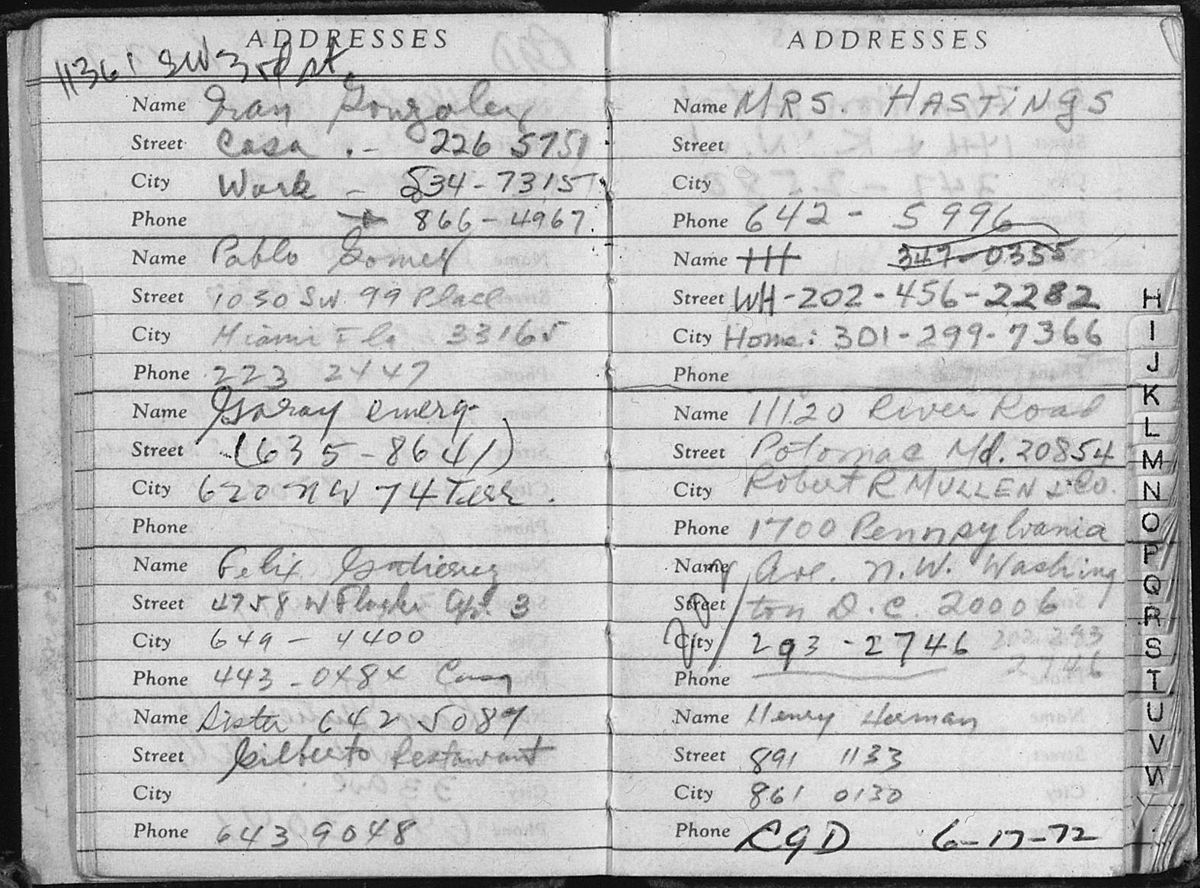 ADDRESSES
11361 SW 3rd st.
Name Ivan Gonzalez
Street Casa .- 226 5751
City Work - 534-7315
Phone 866-4967.
Name Pablo Gomez
Street 1030 SW 99 Place
City Miami Fla 33165
Phone 223 2447
Name Garay emerg-
Street (635-8641)
City 620 NW 74 Terr.
Phone
Name Felix Gutierrez
Street 4758 W Flagler Apt 3
City 649-4400
Phone 443-0484 Casa
Name Sister 642 5087
Street Gilberto Restaurant
City
Phone 643 9048
ADDRESSES
Name MRS. HASTINGS
Street
City
Phone 642-5996
Name HH 347-0355
Street WH-202-456-2282
City Home: 301-299-7366
Phone
Name 11120 River Road
Street Potomac Md. 20854
City Robert R MULLEN & Co.
Phone 1700 Pennsylvania
Name Ave. N.W. Washing
Street ton D.C. 20006
City 202/ 293-2746
Phone
Name Henry
Street 891 1133
City 861 0130
Phone CGD 6-17-72
H
I
J
K
L
M
N
O
P
Q
R
S
T
U
V
W